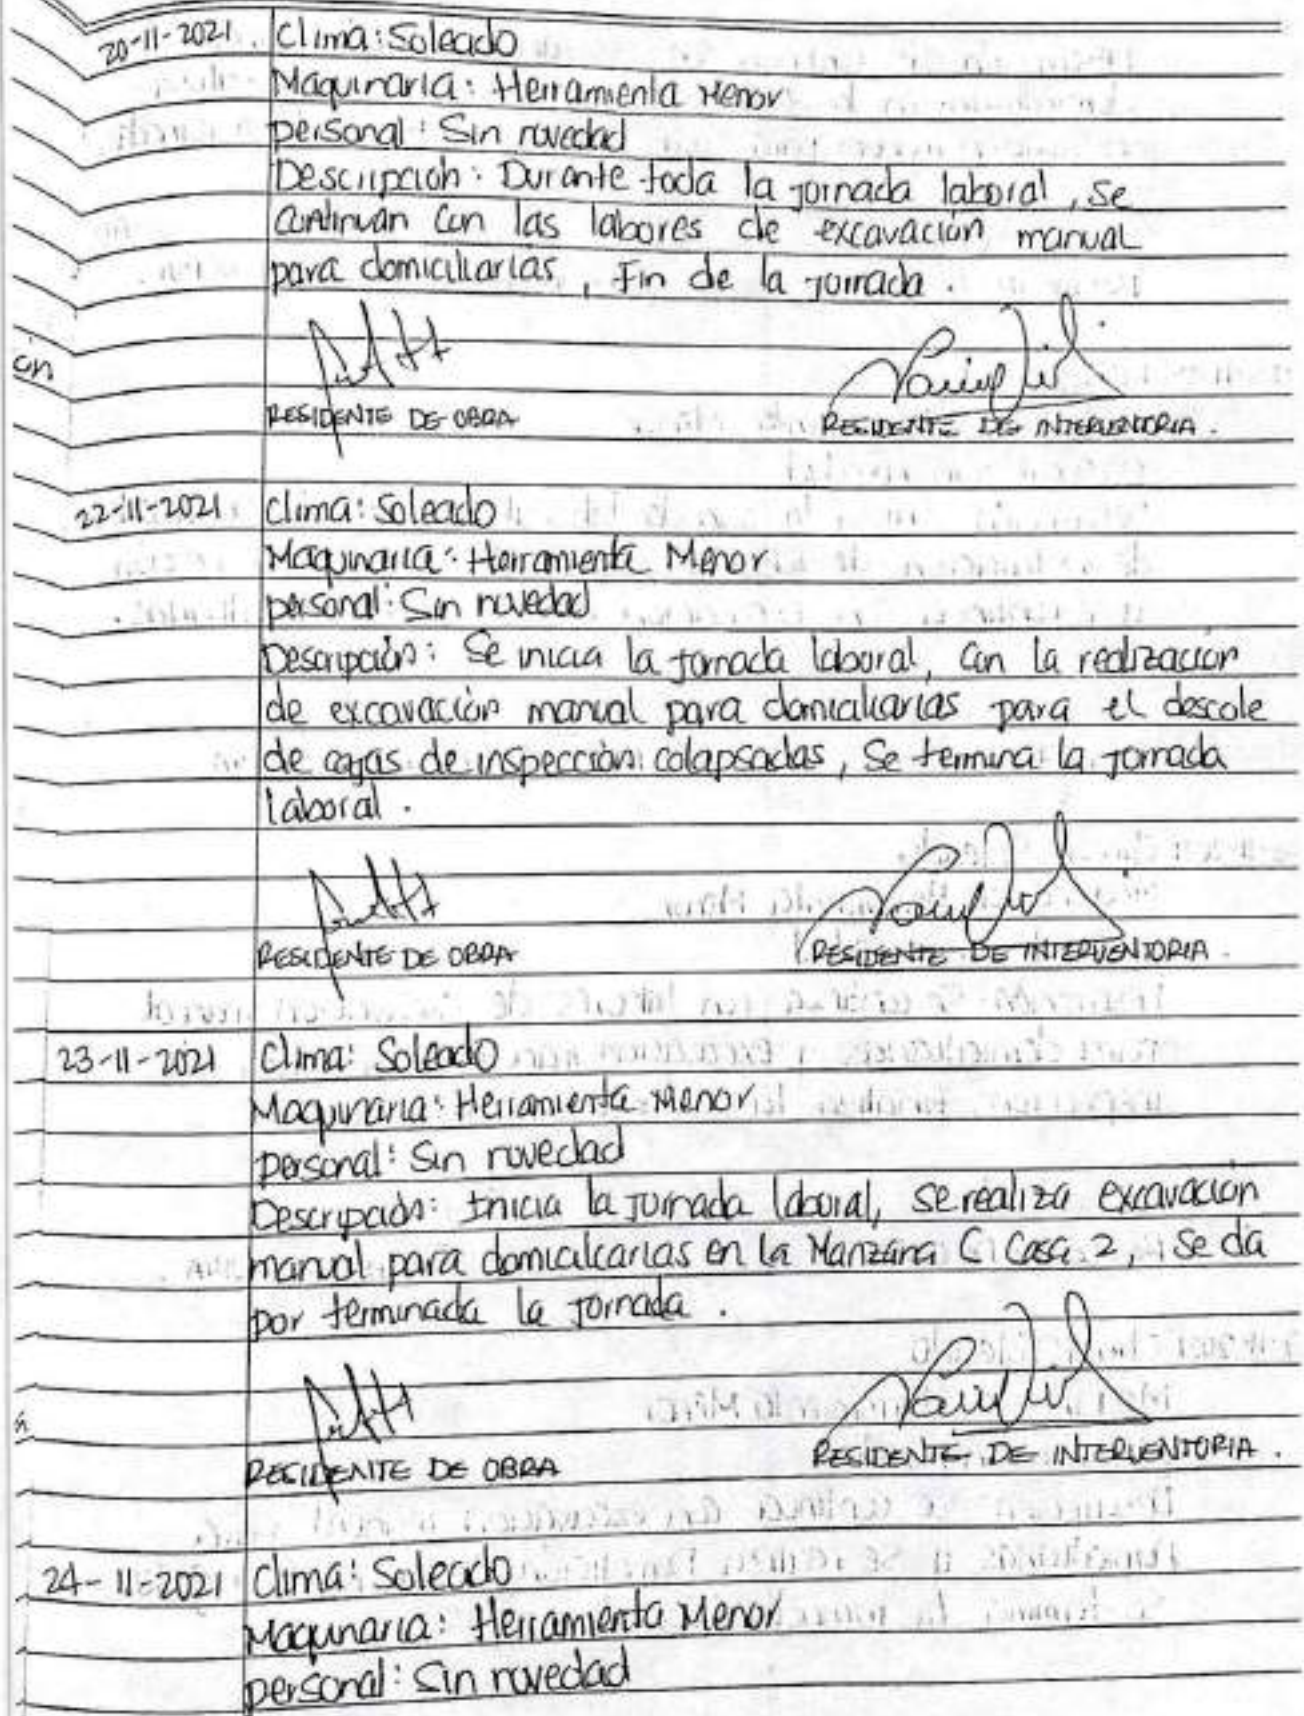 20-11-2021 Clima: Soleado
Maquinaria: Herramienta Menor
personal: Sin novedad
Descripción: Durante toda la jornada laboral, se
continuan con las labores de excavación manual
para domiciliarias, Fin de la jornada.
ón
RESIDENTE DE OBRA RESIDENTE DE INTERVENTORIA.
22-11-2021 Clima: Soleado
Maquinaria: Herramienta Menor
personal: Sin novedad
Descripción: Se inicia la jornada laboral, con la realización
de excavación manual para domiciliarias para el descole
de cajas de inspección colapsadas, Se termina la jornada
laboral.
RESIDENTE DE OBRA RESIDENTE DE INTERVENTORIA.
23-11-2021 Clima: Soleado
Maquinaria: Herramienta Menor
personal: Sin novedad
Descripción: Inicia la jornada laboral, se realiza excavación
manual para domiciliarias en la Manzana C Casa 2, se da
por terminada la jornada.
RESIDENTE DE OBRA RESIDENTE DE INTERVENTORIA.
24-11-2021 Clima: Soleado
Maquinaria: Herramienta Menor
personal: Sin novedad